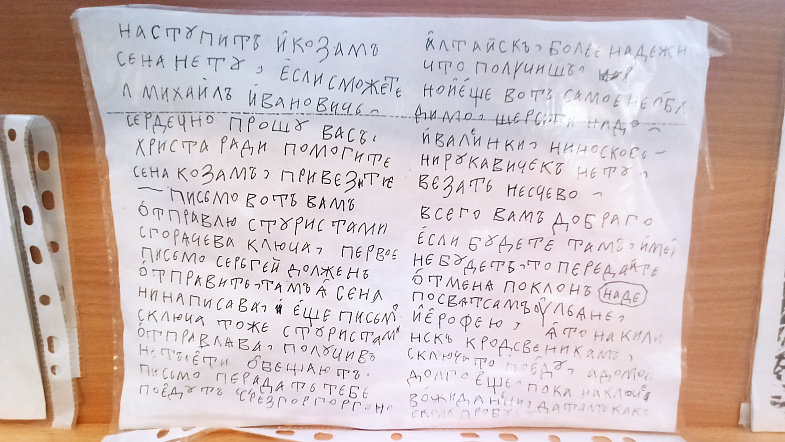 НАСТУПИТЪ И́КОЗАМЪ
СЕНА НЕТУ, Е́СЛИ СМОЖЕТЕ
МИХАИЛЪ И́ВАНОВИЧЬ.
СЕРДЕЧНО ПРОШУ ВАСЪ,
ХРИСТА РАДИ ПОМОГИТЕ
СЕНА КОЗАМЪ, ПРИВЕЗИТЕ
ПИСЬМО ВОТЪ ВАМЪ
О́ТПРАВЛЮ СТУРИСТАМИ
СГОРАЧЕВА КЛЮЧА, ПЕРВОЕ
ПИСЬМО СЕРЬГЕЙ ДОЛЖЕНЬ
О́ТПРАВИТЬ, ТАМЪ А́ СЕНА
НИНАПИСАВА, И́ Е́ЩЕ ПИСЬМО
СКЛЮЧА ТОЖЕ СТУРИСТАМИ
О́ТПРАВЛАВА, ПОЛУЧИВЪ
НЕТЪ О́БЕЩАЮТЪ
ПИСЬМО ПЕРАДАТЬ ТЕБЕ
ПОЕ́ДУТЪ
А́ЛТАЙСКЪ, БОЛЕЕ НАДЕЖИ
ЧТО ПОЛУЧИШЪ,
НОЙ Е́ЩЕ ВОТЪ САМОЕ НЕО́БХ
ДИМО, ШЕРСТИ НАДО
И́ВАЛИНКИ, НИНОСКОВЬ
НИРУКАВИЧЕКЪ НЕТУ,
ВЕЗАТЬ НЕСЧЕВО
ВСЕГО ВАМЪ ДОБРАГО
Е́СЛИ БУДЕТЕ ТАМЪ,
НЕБУДЕТЬ, ТО ПЕРЕДАЙТЕ
О́ТМЕНА ПОКЛОНЪ НАДЕ
ПОСВАТСАМЪ У́ЛЬАНЕ,
И́ Е́РОФЕЮ, А́ТО НАКИЛИ
НСКЪ КРОДСВЕНИКАМЪ,
СКЛЮЧА ТО ПОЕ́ДУ, АДОМОЙ
ДОЛГО Е́ЩЕ, ПОКА НАКЛЮЧЕ
ВО́ЖИДАНИИ,